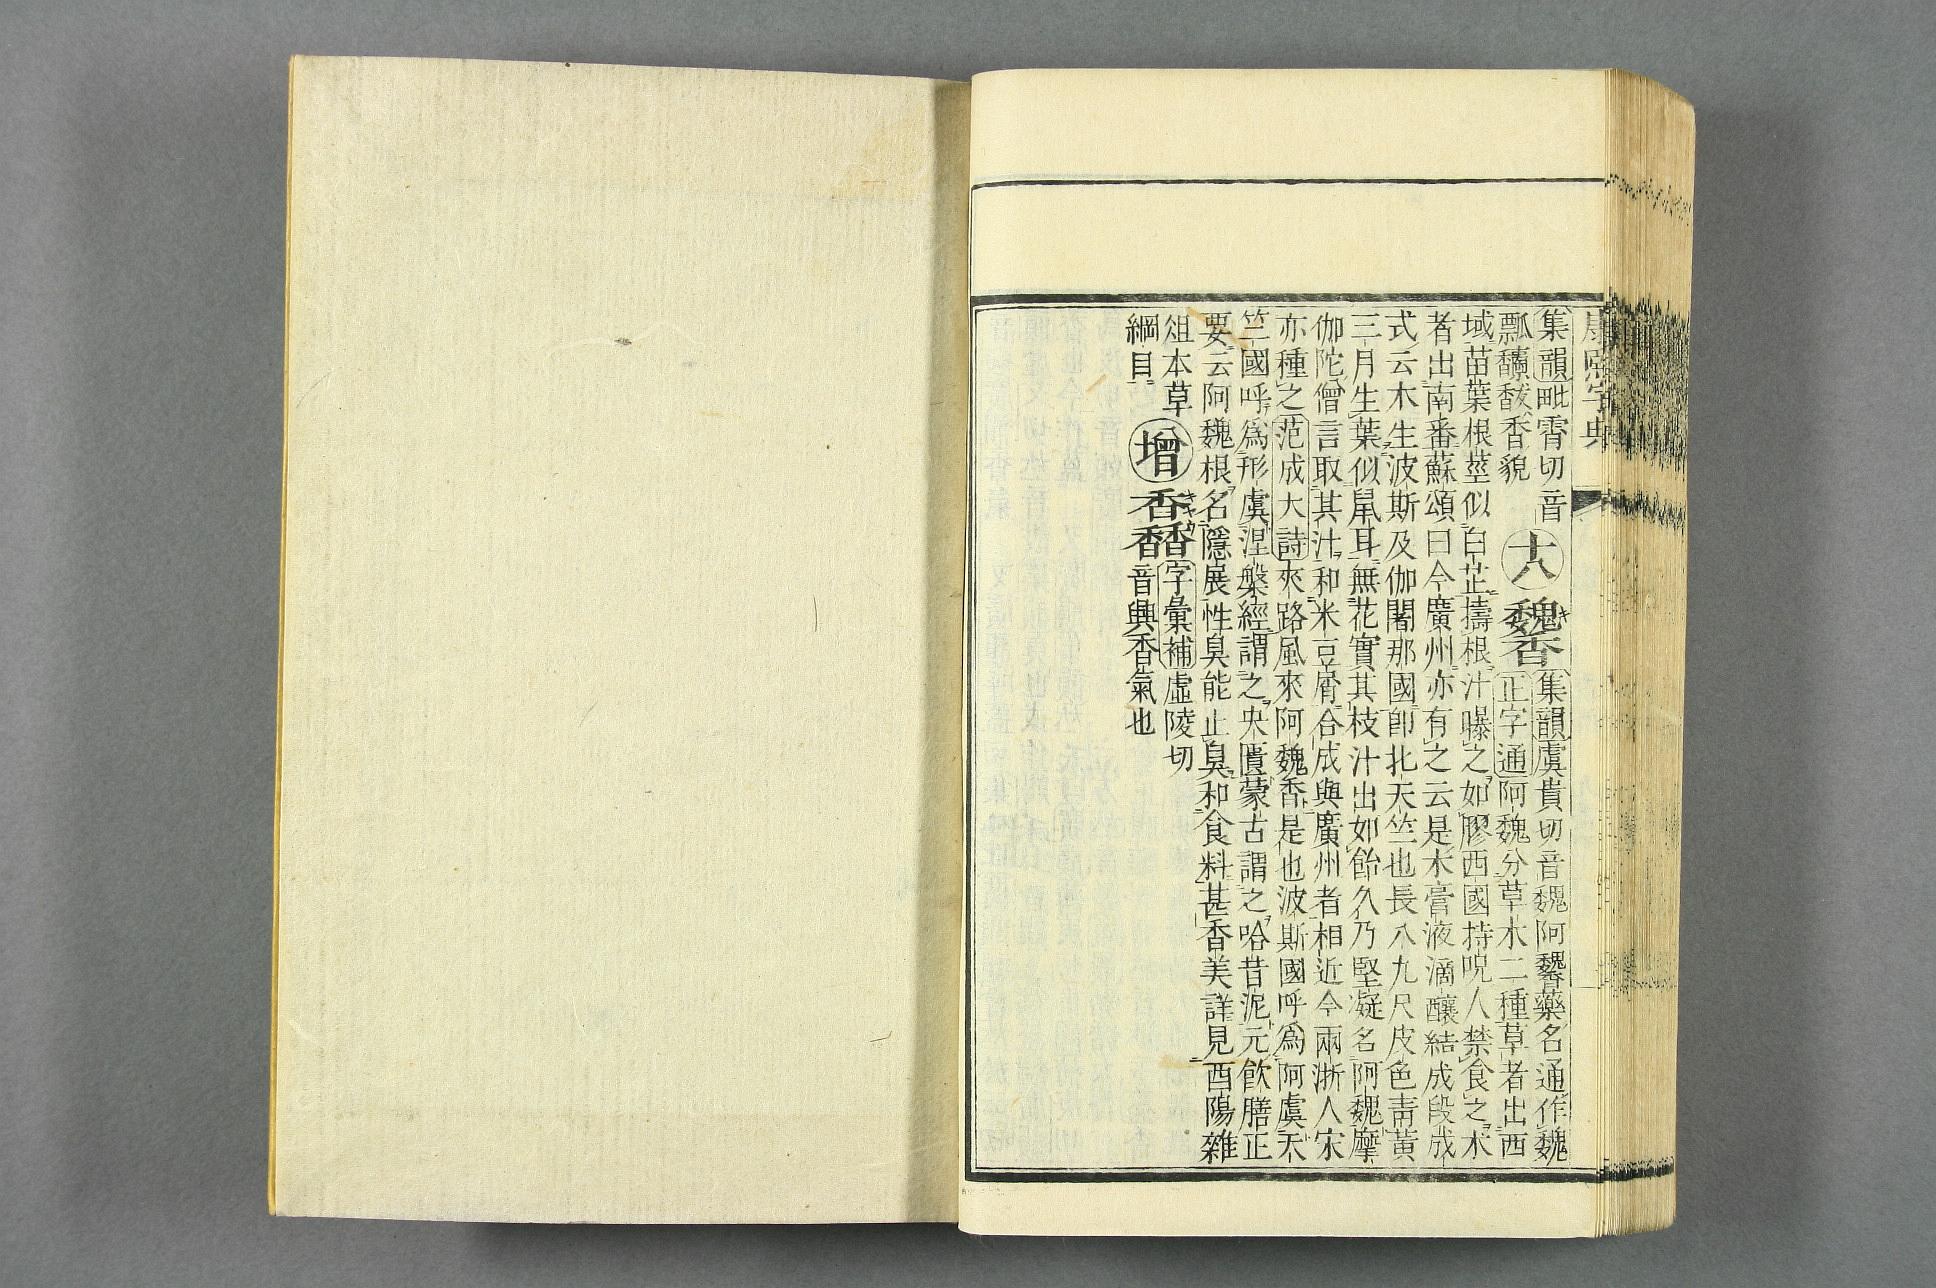 康熙字典
集韻毗霄切音
瓢馩馛香貌
十八
𩡋
集韻虞貴切音魏阿𩡋藥名通作魏
正字通阿魏分草木二種草者出西
域苗葉根莖似白芷擣根汁曝之如膠西國持呪人禁食之木
者出南番蘇頌曰今廣州亦有之云是木膏液滴釀結成段成
式云木生波斯及伽闍那國卽北天竺也長八九尺皮色靑黃
三月生葉似鼠耳無花實其枝汁出如飴久乃堅凝名阿魏摩
伽陀僧言取其汁和米豆屑合成與廣州者相近今兩浙人家
亦種之范成大詩夾路風來阿魏香是也波斯國呼爲阿虞天
竺國呼爲形虞涅槃經謂之央匱蒙古謂之哈昔泥元飮膳正
要云阿魏根名隱展性臭能止臭和食料甚香美詳見酉陽雜
俎本草
綱目
增
字彙補虛陵切
音興香氣也